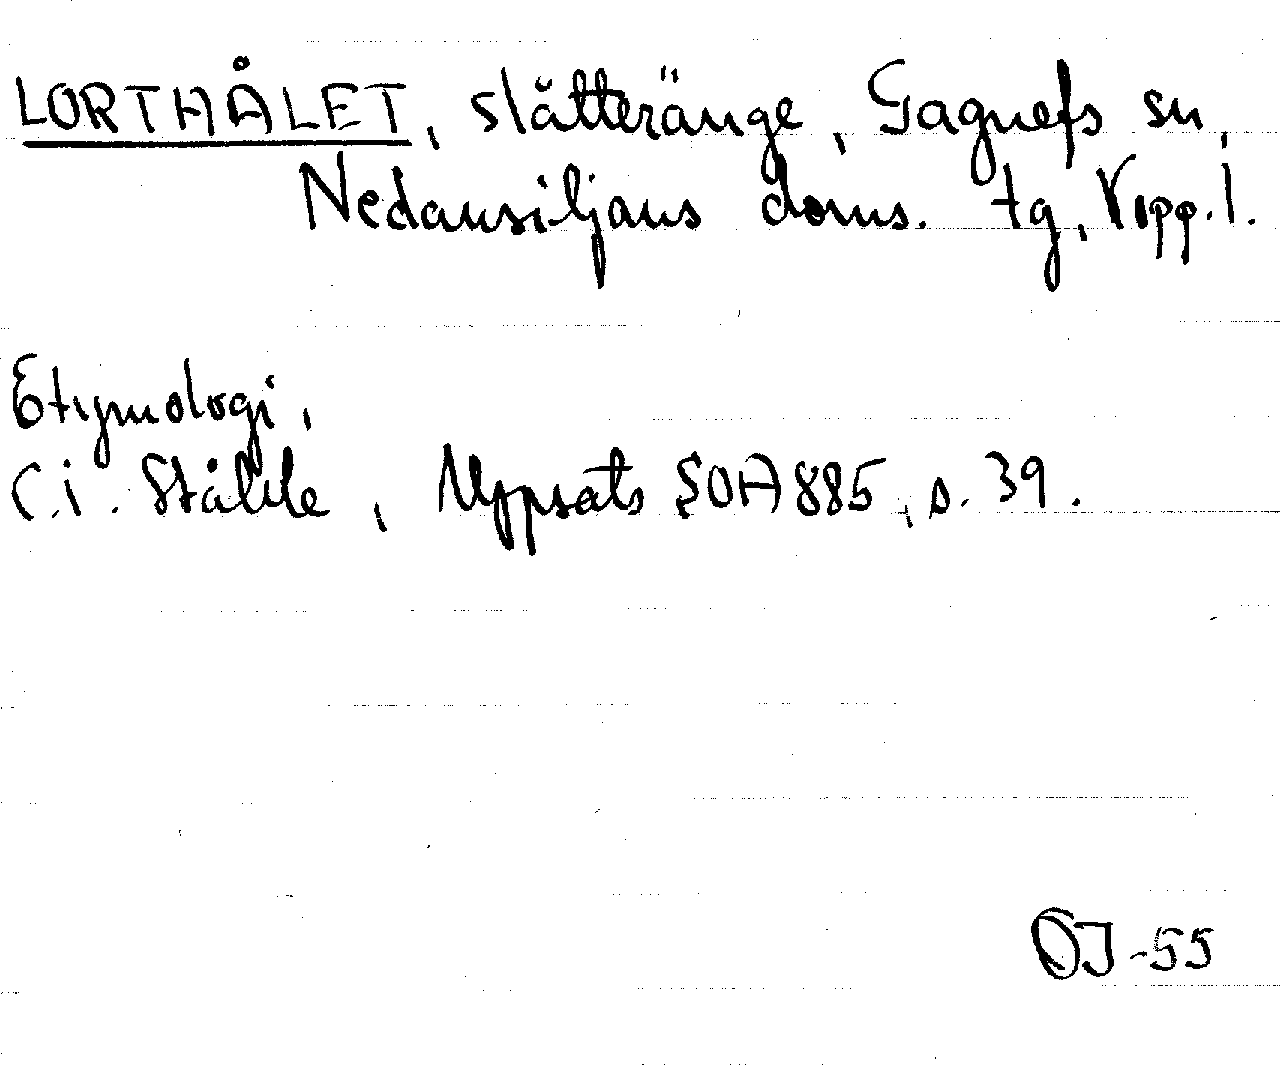 LORTHÅLET, slåtteränge, Gagnefs sn,
Nedansiljans doms. tg, Kopp. l.
Etymologi,
C.i. Ståhle, Uppsats SOA 885, s. 39.
OJ-55